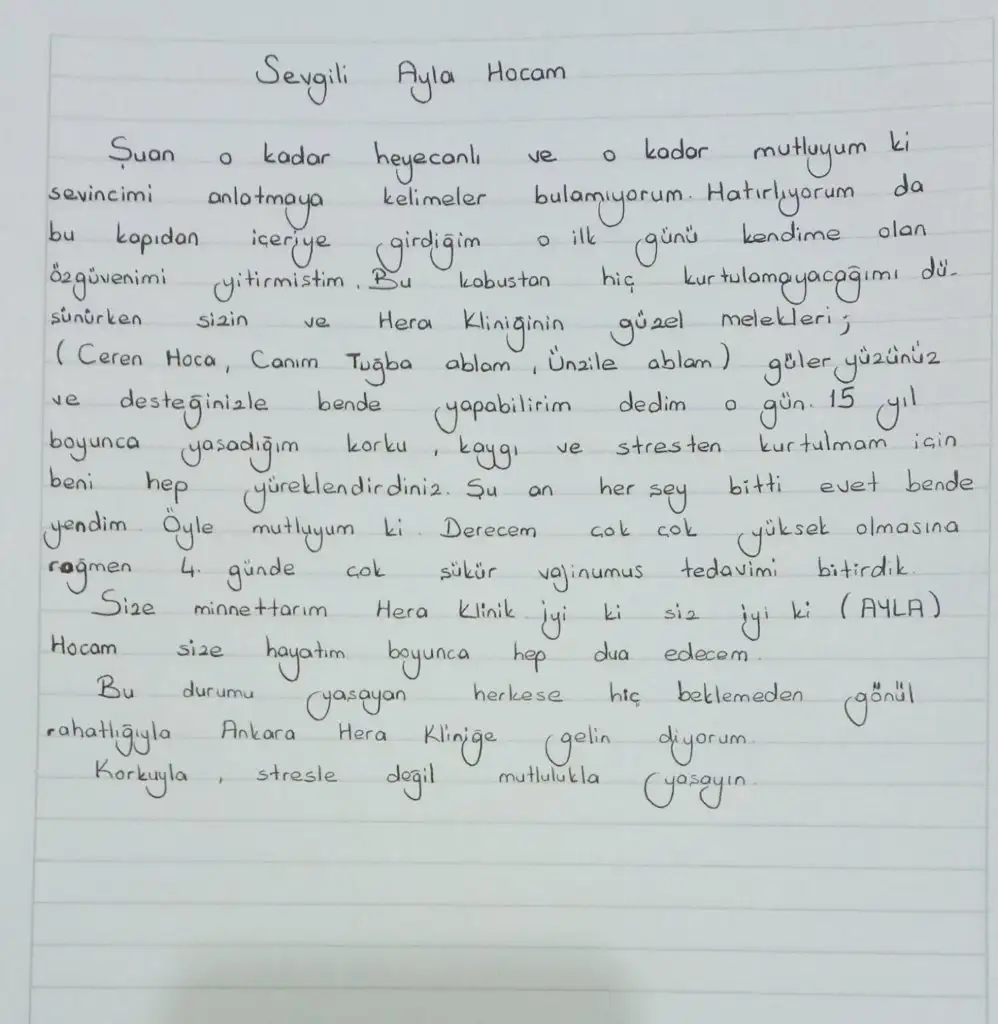 Sevgili Ayla Hocam
Şuan o kadar heyecanlı ve o kadar mutluyum ki
sevincimi anlatmaya kelimeler bulamıyorum. Hatırlıyorum da
bu kapıdan içeriye girdiğim o ilk günü kendime olan
özgüvenimi yitirmistim. Bu kabustan hiç kurtulamayacağımı dü-
sünürken sizin ve Hera Kliniğinin güzel melekleri;
(Ceren Hoca, Canım Tuğba ablam, Ünzile ablam) güler yüzünüz
ve desteğinizle bende yapabilirim dedim o gün. 15 yıl
boyunca yasadığım korku, kaygı ve stresten kurtulmam icin
beni hep yüreklendirdiniz. Şu an her sey bitti evet bende
yendim. Öyle mutluyum ki. Derecem cok cok yüksek olmasına
rağmen 4. günde cok sükür vajinumus tedavimi bitirdik.
Size minnettarım Hera Klinik iyi ki siz iyi ki (AYLA)
Hocam size hayatım boyunca hep dua edecem.
Bu durumu yasayan herkese hiç beklemeden gönül
rahatlığıyla Ankara Hera Kliniğe gelin diyorum.
Korkuyla, stresle değil mutlulukla yasayın.